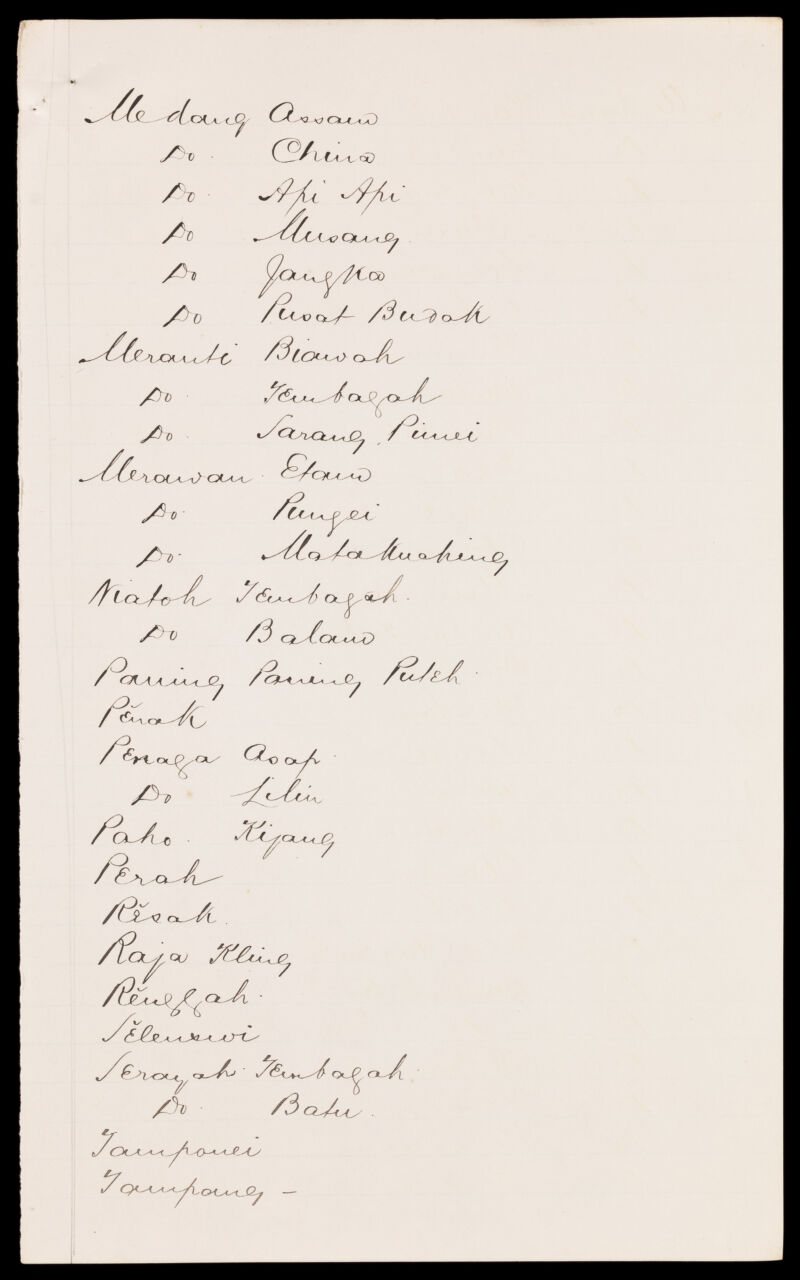 Medang Assam
Do China
Do Api Api
Do Musang
Do Jangka
Do Pusat Budak
Meranti Biawah
Do Tembagah
Do Sarang Pimei
Merawan Etam
Do Pungei
Do Mata Kuching
Niatoh Tembagah
Do Balam
Paning Paning Puteh
Pěnak
Penaga Asap
Do Lilin
Paho Kijang
Perah
Rěsak
Raja Kling
Rěnggah
Sělensuwi
Serayah Tembagah
Do Batu
Tamponei
Tampang –